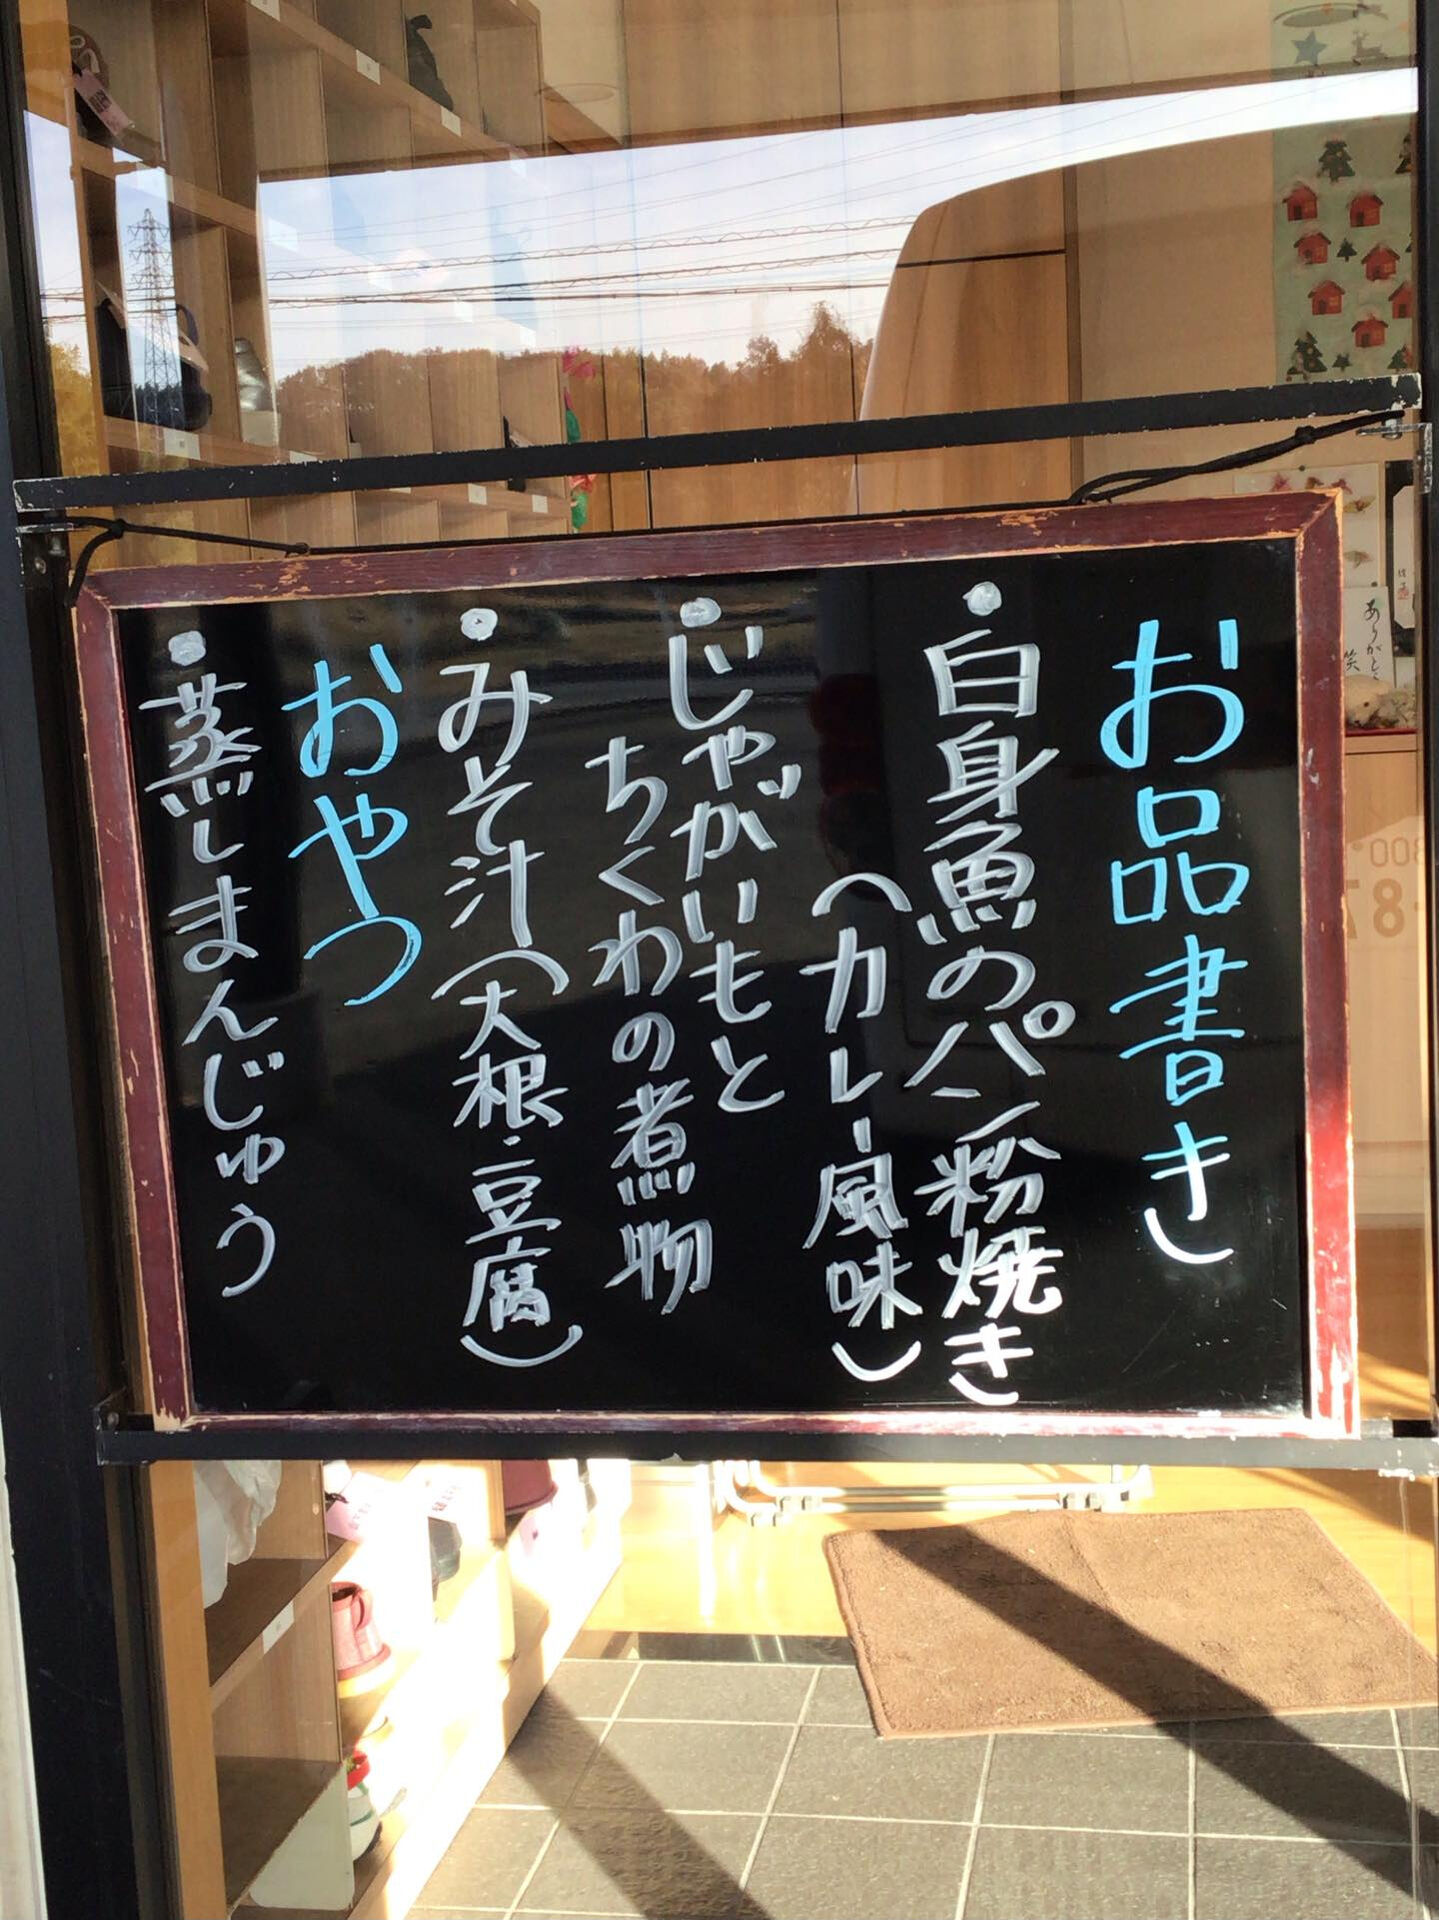 お品書き
・白身魚のパン粉焼き
(カレー風味)
・じゃがいもと
ちくわの煮物
・みそ汁(大根・豆腐)
おやつ
・蒸しまんじゅう
ありがとう
笑